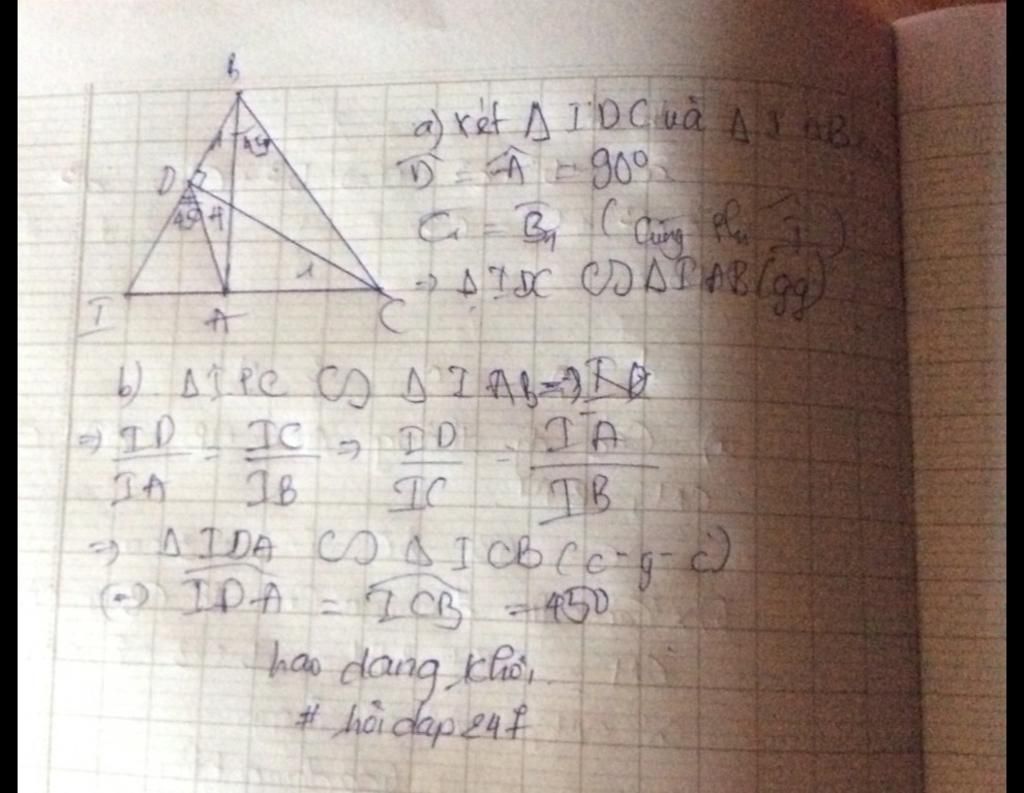 B
45
D
45
H
1
I
A
C
a) xét Δ IDC và Δ IAB
D̂ = Â = 90°
Ĉ₁ = B̂₁ ( cùng phụ Î )
→ Δ IDC ∽ Δ IAB (gg)
b) Δ IDC ∽ Δ IAB
=> ID/IA = IC/IB => ID/IC = IA/IB
=> Δ IDA ∽ Δ ICB (c-g-c)
(=>) IDA = ICB = 450
hao dang khôi
# hỏi dap 247